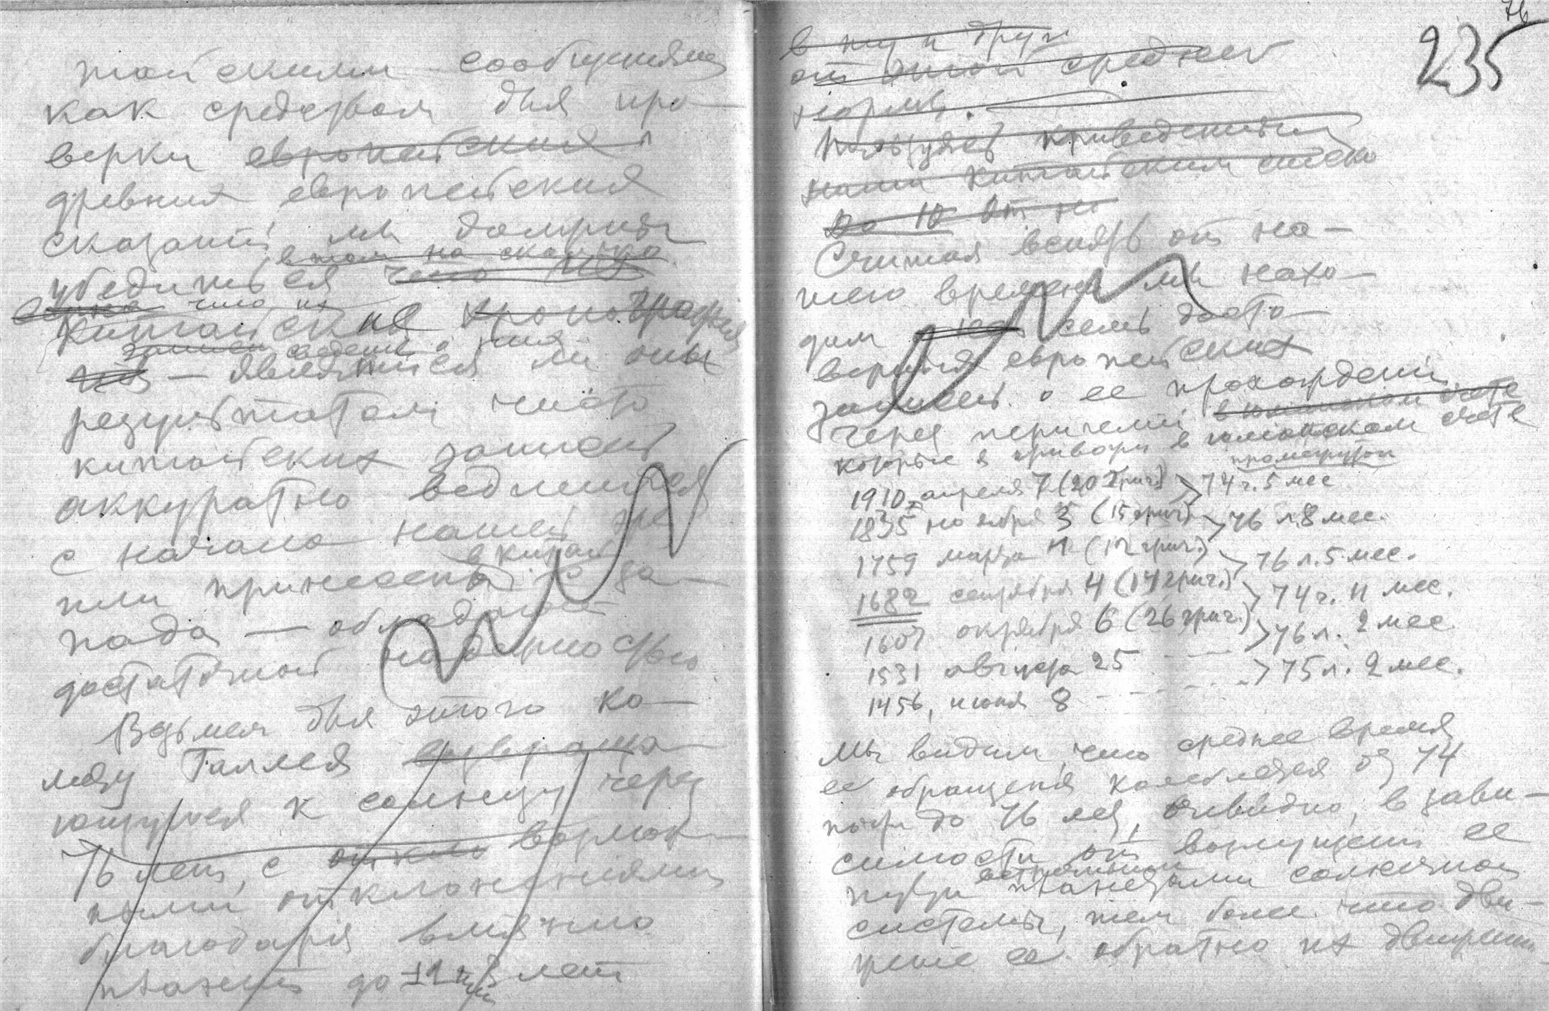 тайскими сообщениями
как средством для про-
верки европейских
древних европейских
сказаний, мы должны
убедиться
что их
китайские хронография
сведения о них
— являются ли оны
результатом чисто
китайских записей
аккуратно ведшихся
с начала нашей эры
в Китай
или принесены с за-
пада — обладают
достаточной надежностью
Возьмем для этого ко-
мету Галлея возвраща-
ющуюся к солнцу через
76 лет, с
ными отклонениями
благодаря влиянию
планет до ± 1 1/2 лет
76
235
в ту и друг
от этой средней
нормы.
Пользуясь приведенными
нами китайскими
До 10
Считая вспять от на-
шего времени мы нахо-
дим семь досто-
верных европейских
записей о ее прохождении
через перигелий в юлианском счете
которые я привожу в юлианском счете
промежуток
1910, апреля 7 (20 григ.) > 74 г. 5 мес.
1835 ноября 3 (15 григ.) > 76 л. 8 мес.
1759 марта 1 (12 григ.) > 76 л. 5 мес.
1682 сентября 4 (14 григ.) > 74 г. 11 мес.
1607 октября 6 (26 григ.) > 76 л. 2 мес.
1531 августа 25 > 75 л. 2 мес.
1456, июня 8
Мы видим, что среднее время
ее обращения колеблется от 74
почти до 76 лет, очевидно, в зави-
симости от возмущений ее
пути остальными планетами солнечной
системы, тем более что дви-
жение ее обратно их движению